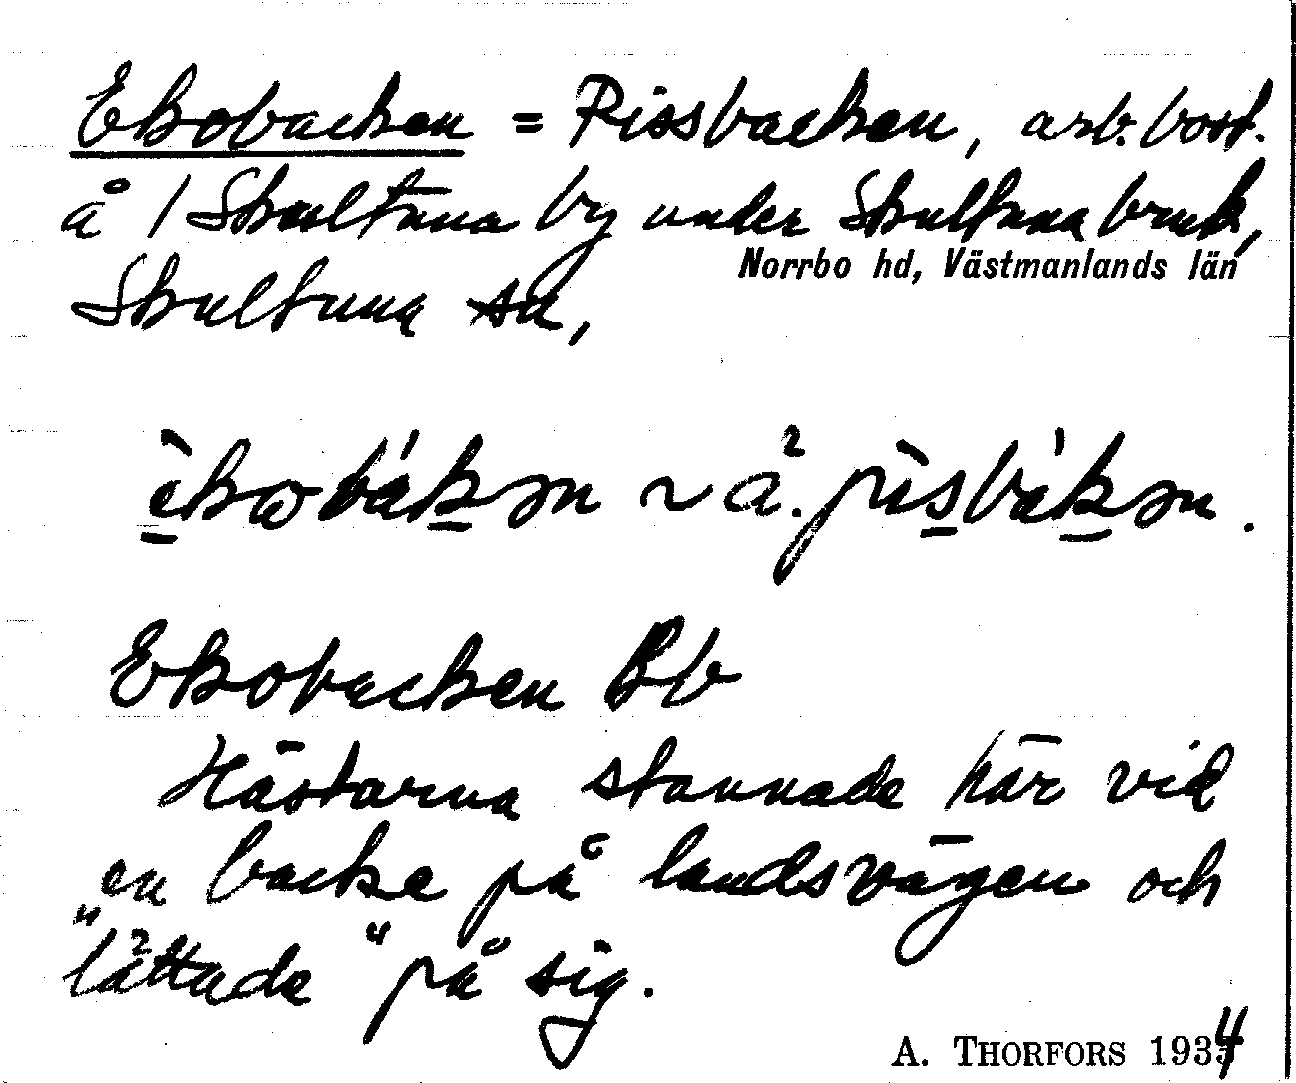 Ekobacken = Pissbacken, arb. bost.
å / Skultuna by under Skultuna bruk,
Norrbo hd, Västmanlands län
Skultuna sn,
ὲkωbák̲ən ~ ä. pìs̲bák̲ən.
Ekobacken Bb
Hästarna stannade här vid
en backe på landsvägen och
"lättade" på sig.
A. THORFORS 1934